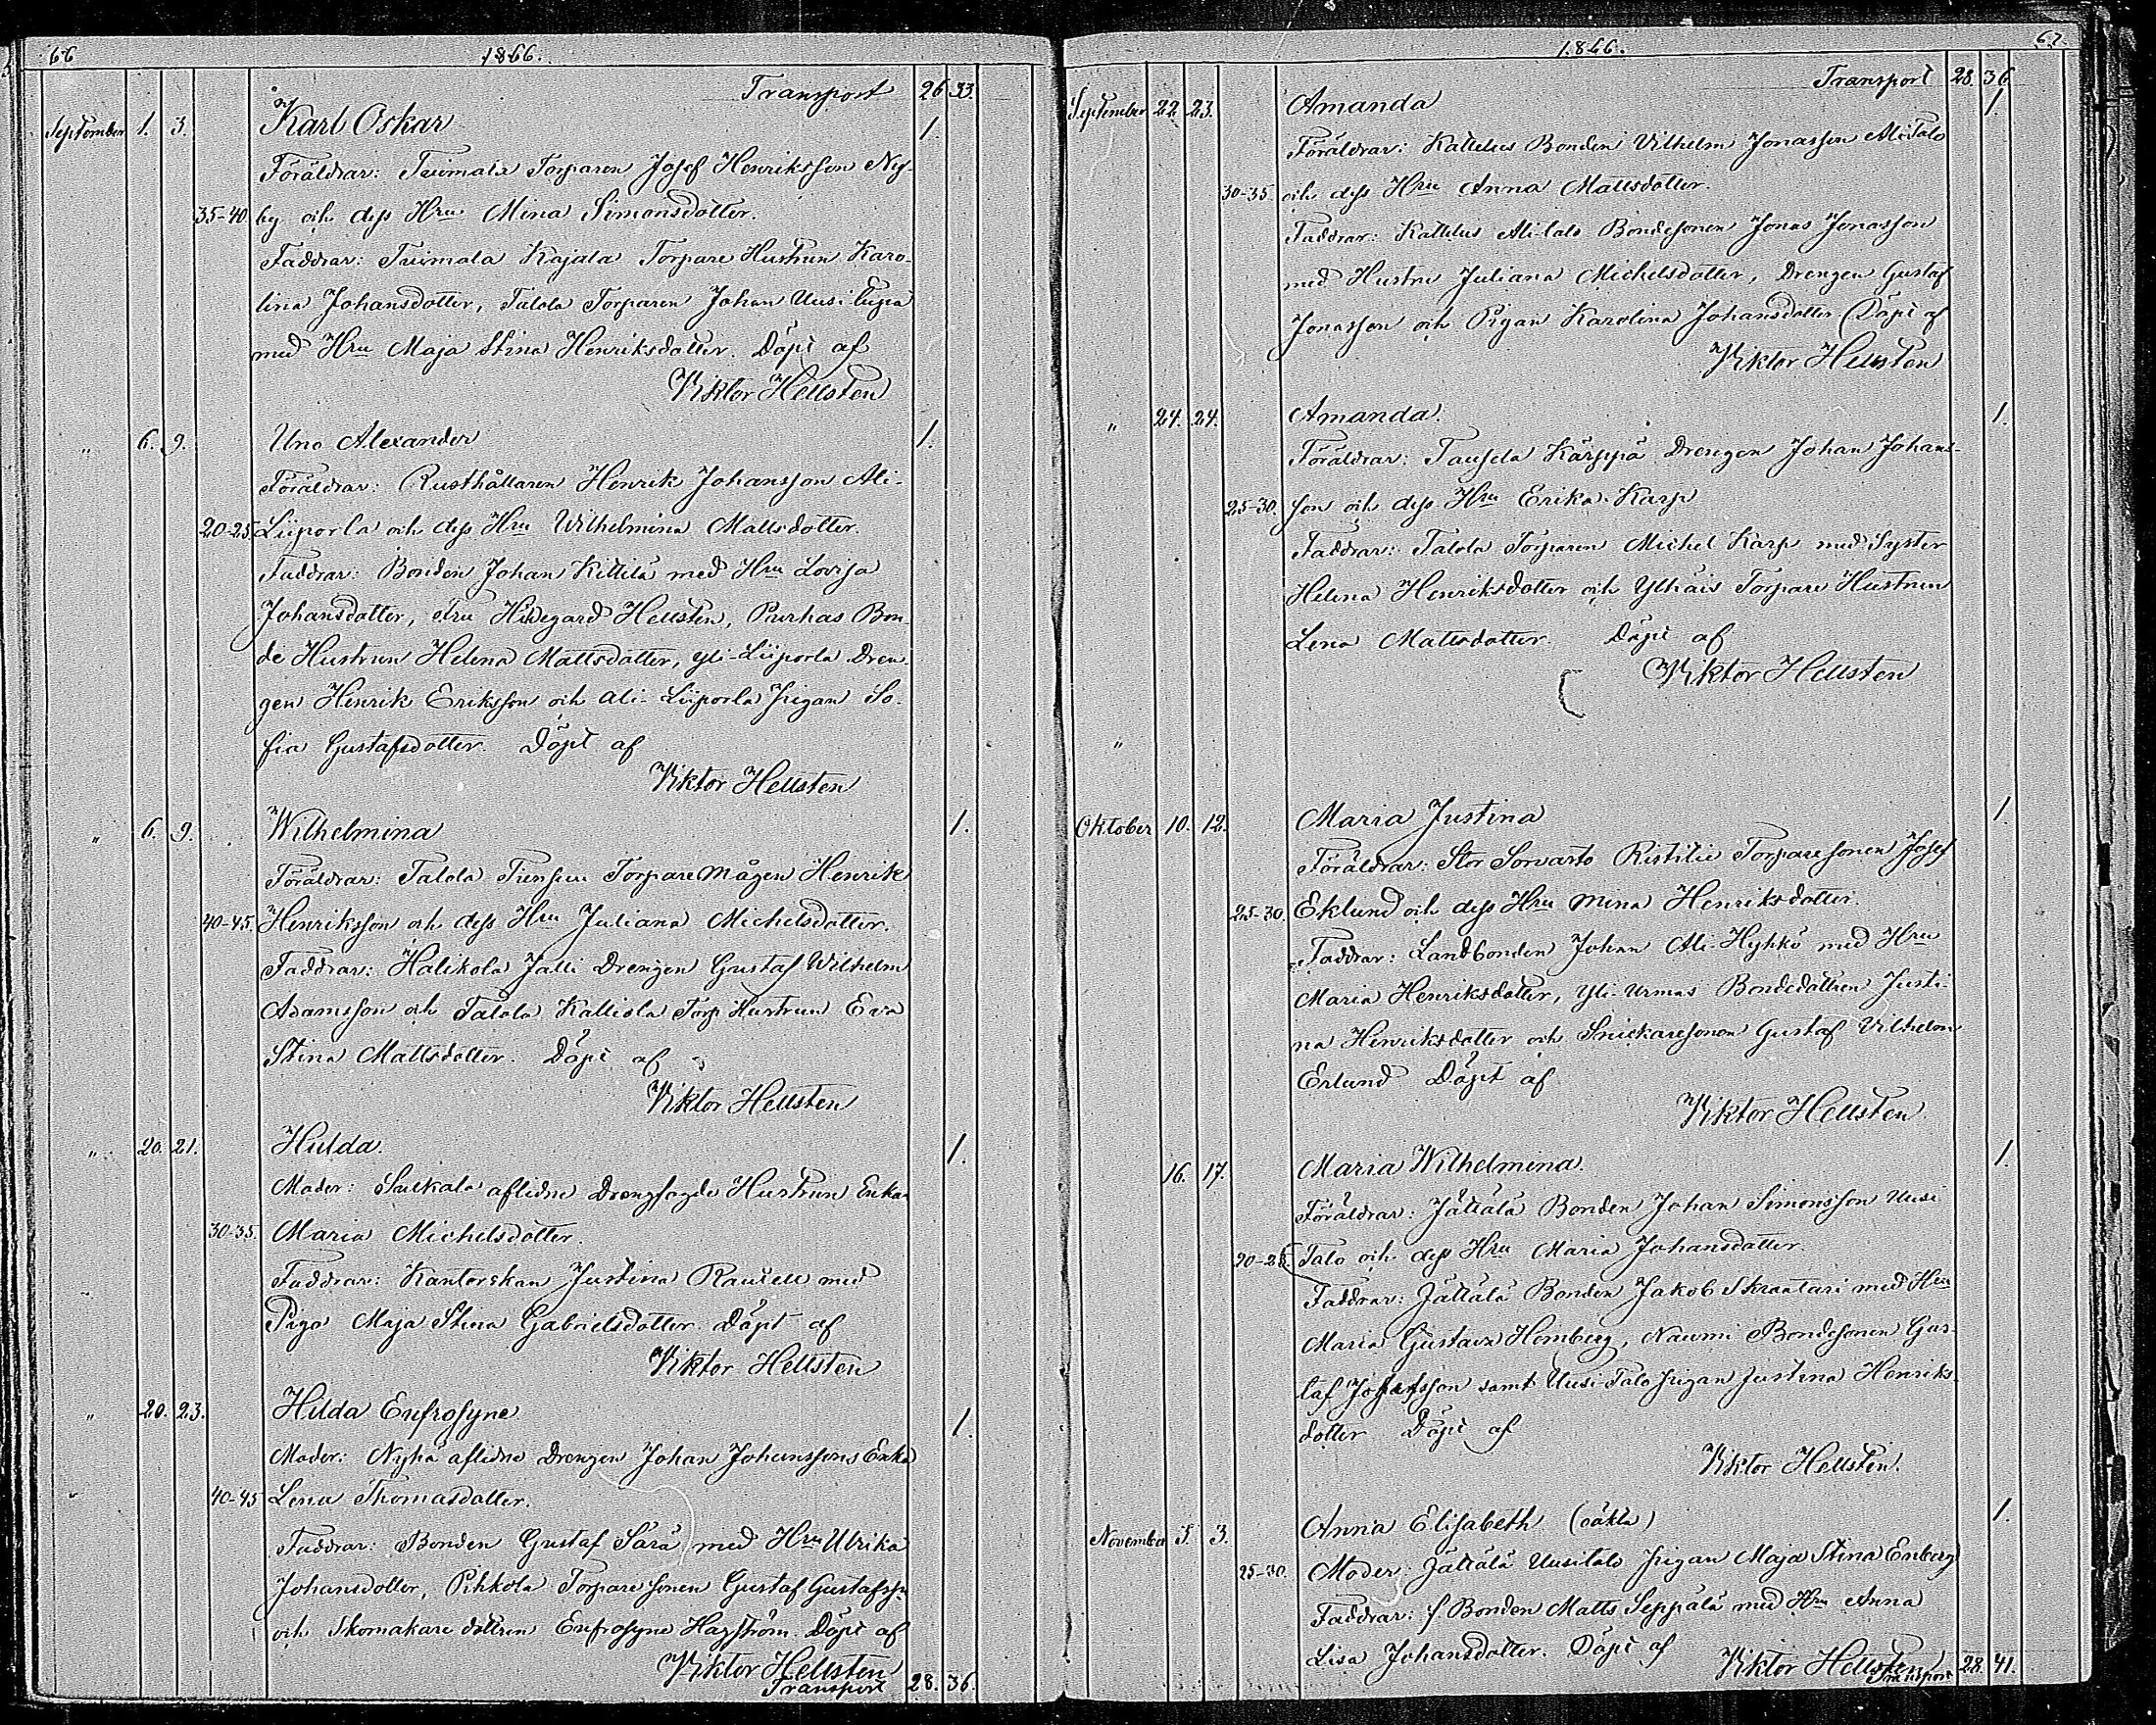 66
1866.
Transport 26 33.
September 1. 3. Karl Oskar 1.
Föräldrar: Tuimala Torparen Josef Henriksson Ny-
35-40 by och dess Hru Mina Simonsdotter.
Faddrar: Tuimala Kajala Torpare Hustrun Karo-
lina Johansdotter, Talola Torparen Johan Uusi
med Hru Maja Stina Henriksdotter. Döpt af
Viktor Hellsten
" 6. 9. Uno Alexander 1.
Föräldrar: Rusthållaren Henrik Johansson Ali-
20-25. Liiporla och dess Hru Wilhelmina Mattsdotter.
Faddrar: Bonden Johan Kittilä med Hru Lovisa
Johansdotter, Fru Hildegard Hellsten, Purhas Bon-
de Hustrun Helena Mattsdotter, Yli-Liiporla Dren-
gen Henrik Eriksson och Ali-Liiporla pigan So-
fia Gustafsdotter. Döpt af
Viktor Hellsten
" 6. 9. Wilhelmina 1.
Föräldrar: Talola Torpare mågen Henrik
40-45. Henriksson och dess Hru Juliana Michelsdotter.
Faddrar: Halikola Jalli Drengen Gustaf Wilhelm
Adamsson och Talola Kalliola Torp. Hustrun Eva
Stina Mattsdotter. Döpt af
Viktor Hellsten
" 20. 21. Hulda. 1.
Moder: aflidne Drengfogde Hustrun Enkan
30-35. Maria Michelsdotter.
Faddrar: Kantorskan Justina med
Piga Maja Stina Gabrielsdotter. Döpt af
Viktor Hellsten
" 20. 23. Hilda Enfrosyne 1.
Moder: aflidne Drengen Johan Johanssons Enka
40-45 Lena Thomasdotter.
Faddrar: Bonden Gustaf Särä med Hru Ulrika
Johansdotter, Pihkola Torpare sonen Gustaf Gustafsson
och Skomakare dottren Enfrosyne Hagström. Döpt af
Viktor Hellsten
Transport 28. 36.
1866.
67.
Transport 28. 36
September 22. 23. Amanda 1.
Föräldrar: Kattelus Bonden Vilhelm Jonasson Ali-Talo
30-35. och dess Hru Anna Mattsdotter.
Faddrar: Kattelus Ali-talo Bondesonen Jonas Jonasson
med Hustru Juliana Michelsdotter, Drengen Gustaf
Jonasson och Pigan Karolina Johansdotter Döpt af
Viktor Hellsten
" 24. 24. Amanda. 1.
Föräldrar: Käyppä Drengen Johan Johans-
25-30. son och dess Hru Erika Karp
Faddrar: Talola Torparen Michel Karp med Syster
Helena Henriksdotter och Torpare Hustrun
Lena Mattsdotter. Döpt af
Viktor Hellsten
"
Oktober 10. 12. Maria Justina 1.
Föräldrar: Stor Sorvasto Torparesonen Josef
25-30. Eklund och dess Hru Mina Henriksdotter.
Faddrar: Landbonden Johan Ali-Hyhkö med Hru
Maria Henriksdotter, Yli-Urmas Bondedottren Justi-
na Henriksdotter och Snickaresonen Gustaf Vilhelm
Erlund Döpt af
Viktor Hellsten
16. 17. Maria Wilhelmina. 1.
Föräldrar: Jättälä Bonden Johan Simonsson Uusi
20-25. Talo och dess Hru Maria Johansdotter.
Faddrar: Jättälä Bonden Jakob Skraatari med Hru
Maria Gustava Homberg, Naumi Bondesonen Gus-
taf Josefsson samt Uusi-Talo pigan Justina Henriks-
dotter Döpt af
Viktor Hellsten.
November 3. Anna Elisabeth (oäkta) 1.
25-30. Moder: Jättälä Uusitalo pigan Maja Stina Enberg
Faddrar: f Bonden Matts Seppälä med Hru Anna
Lisa Johansdotter. Döpt af
Viktor Hellsten
Transport 28. 41.